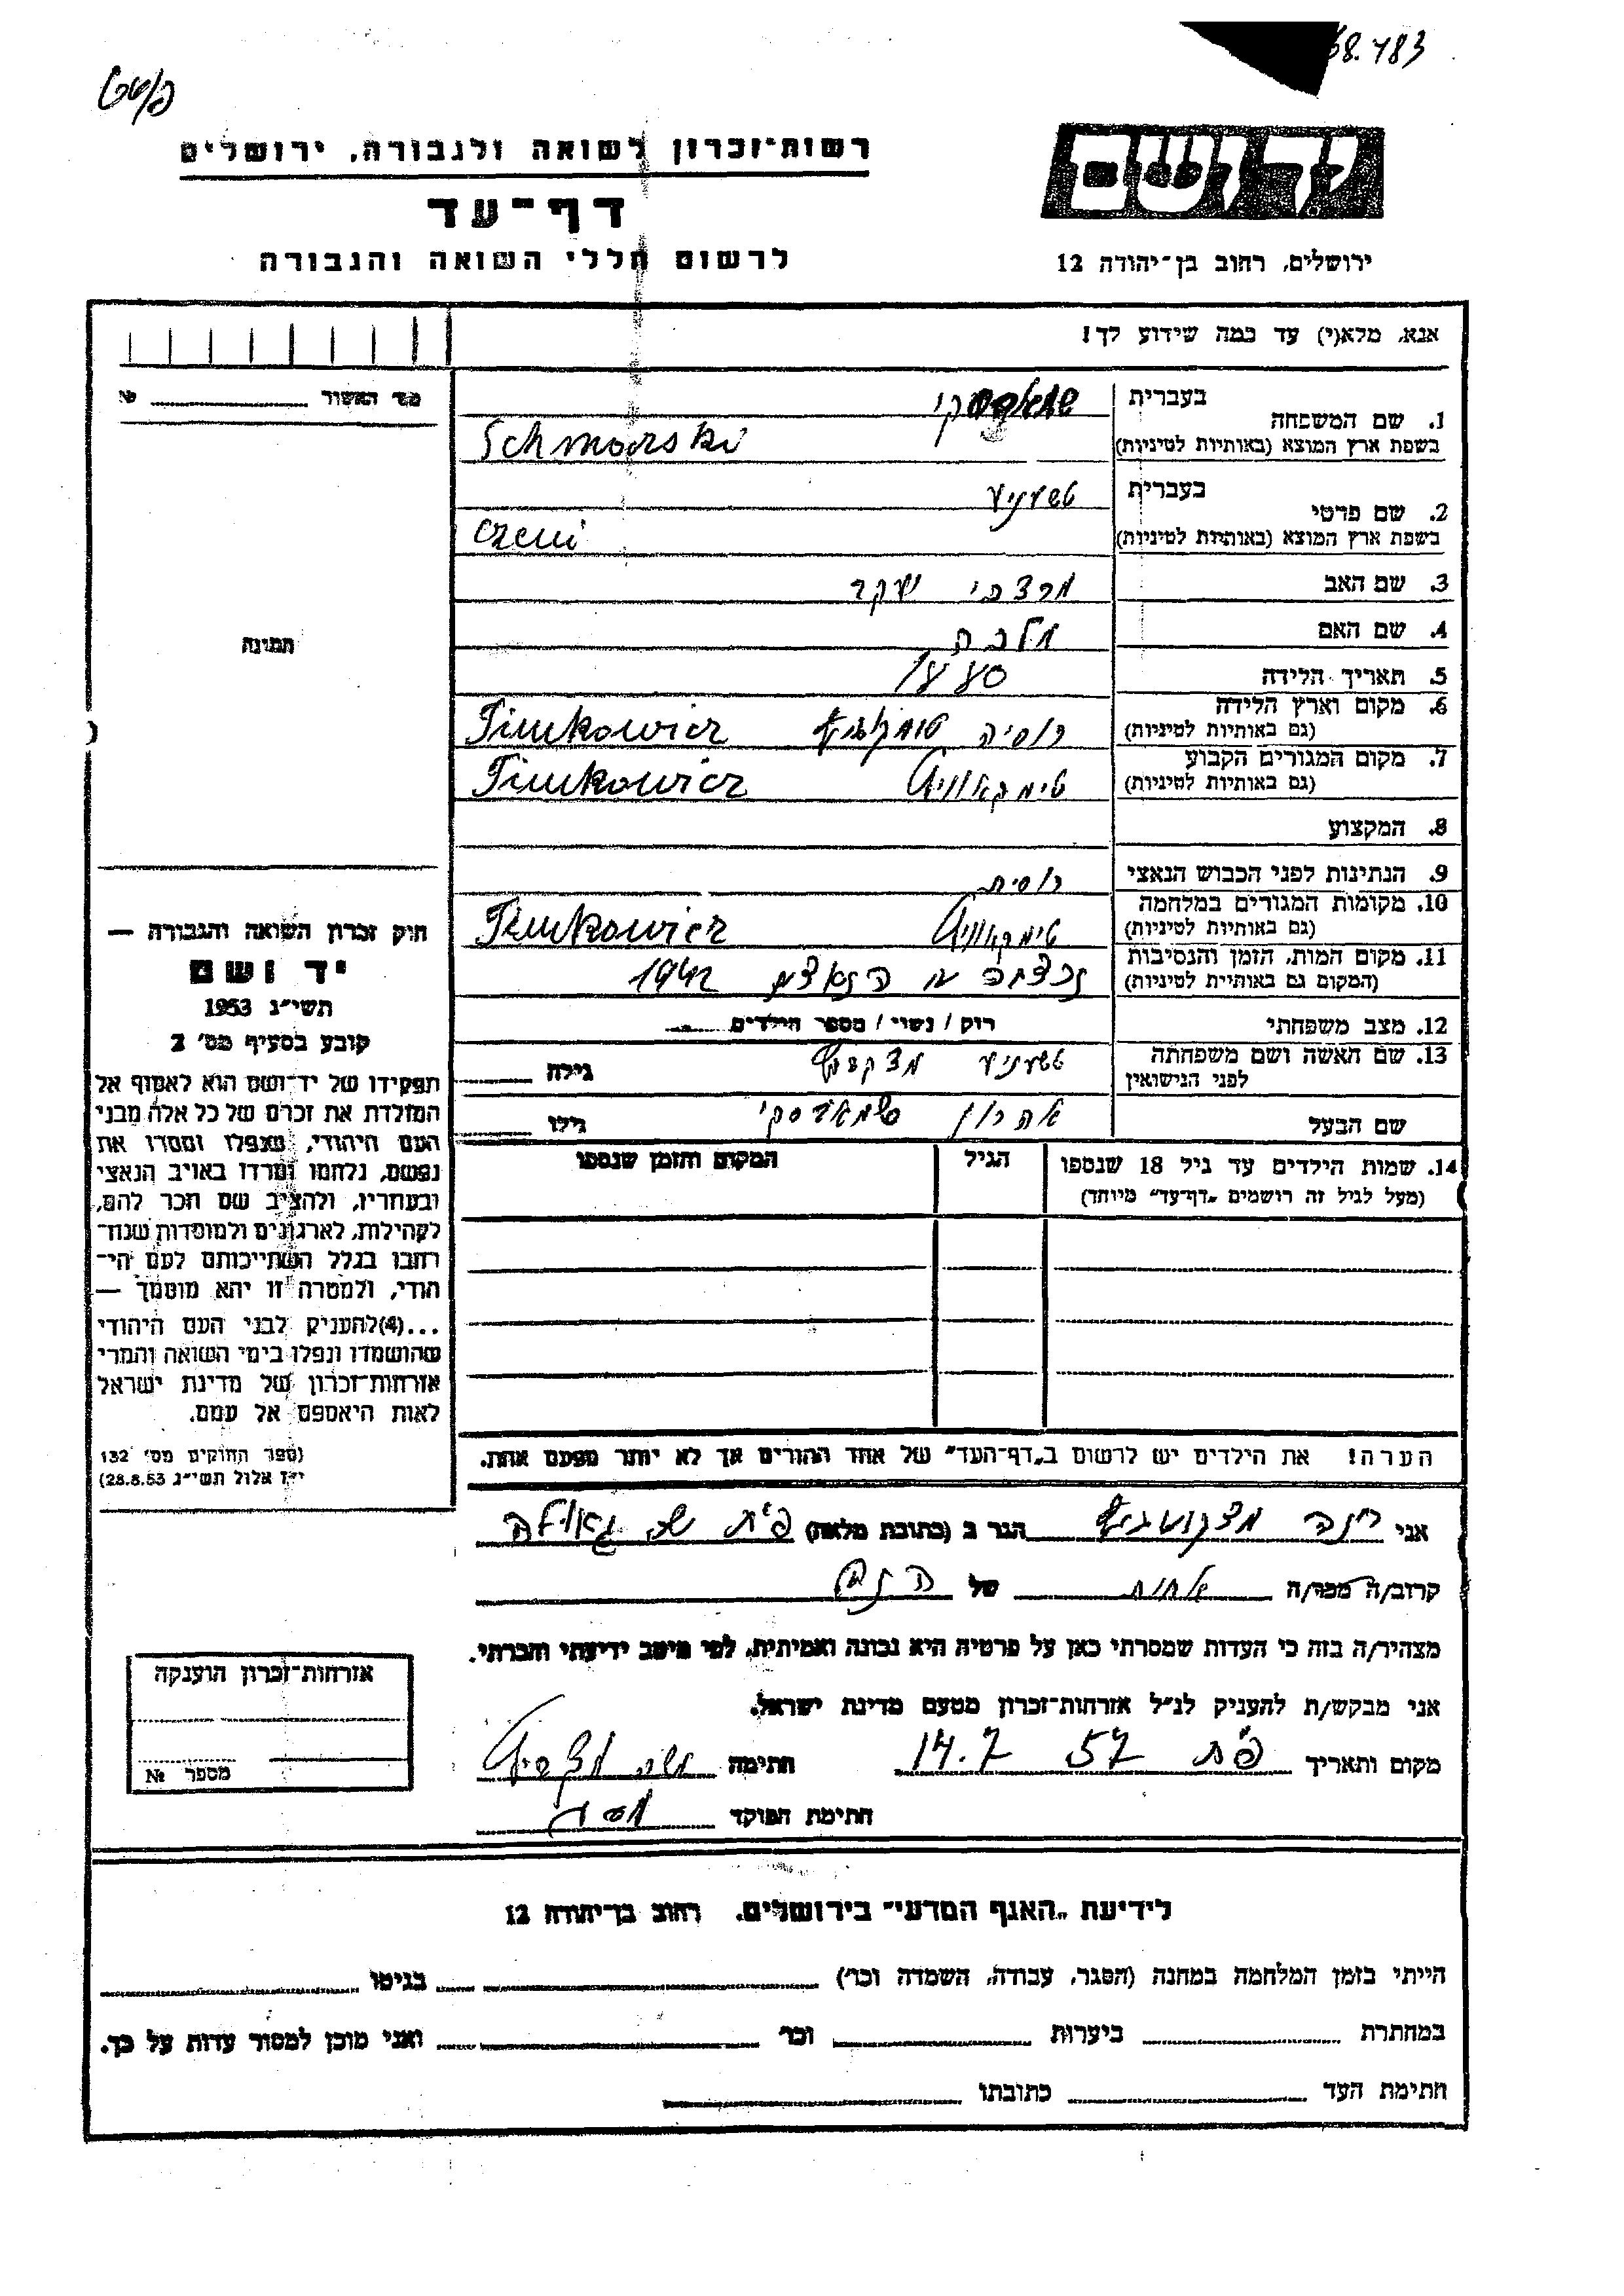 68.483
רשות־זכרון לשואה ולגבורה, ירושלים
דף־עד
לרשום חללי השואה והגבורה
יד ושם
ירושלים, רחוב בן־יהודה 12
אנא, מלא(י) עד כמה שידוע לך!
מס׳ האשור № 
1. שם המשפחה בעברית
בשפת ארץ המוצא (באותיות לטיניות) Schmorski
2. שם פרטי בעברית טשערניע
בשפת ארץ המוצא (באותיות לטיניות) Czerni
3. שם האב מרדכי
4. שם האם מלכה
5. תאריך הלידה
6. מקום וארץ הלידה רוסיה Timkowicz
(גם באותיות לטיניות)
7. מקום המגורים הקבוע טימקאוויץ Timkowicz
(גם באותיות לטיניות)
8. המקצוע
9. הנתינות לפני הכבוש הנאצי רוסית
10. מקומות המגורים במלחמה טימקאוויץ Timkowicz
(גם באותיות לטיניות)
11. מקום המות, הזמן והנסיבות נרצחה ע הנאצים 1942
(המקום גם באותיות לטיניות)
12. מצב משפחתי רוק / נשוי / מספר הילדים
13. שם האשה ושם משפחתה גילה
לפני הנישואין
שם הבעל אהרון שמאדסקי גילו
14. שמות הילדים עד גיל 18 שנספו הגיל המקום והזמן שנספו
(מעל לגיל זה רושמים „דף־עד” מיוחד)
הערה! את הילדים יש לרשום ב„דף־העד” של אחד ההורים אך לא יותר מפעם אחת.
תמונה
חוק זכרון השואה והגבורה —
יד ושם
תשי״ג 1953
קובע בסעיף מס׳ 2
תפקידו של יד־ושם הוא לאסוף אל
המולדת את זכרם של כל אלה מבני
העם היהודי, שנפלו ומסרו את
נפשם, נלחמו ומרדו באויב הנאצי
ובעוזריו, ולהציב שם וזכר להם,
לקהילות, לארגונים ולמוסדות שנח־
רבו בגלל השתייכותם לעם הי־
הודי, ולמטרה זו יהא מוסמך —
...(4)להעניק לבני העם היהודי
שהושמדו ונפלו בימי השואה והמרי
אזרחות־זכרון של מדינת ישראל
לאות היאספם אל עמם.
(ספר החוקים מס׳ 132
י״ז אלול תשי״ג 28.8.53)
אני הגר ב (כתובת מלאה) פ״ת שכ גאולה
קרוב/ה מכר/ה אחות של
מצהיר/ה בזה כי העדות שמסרתי כאן על פרטיה היא נכונה ואמיתית, לפי מיטב ידיעתי והכרתי.
אני מבקש/ת להעניק לנ״ל אזרחות־זכרון מטעם מדינת ישראל.
מקום ותאריך פ״ת 14.7 57 חתימה
חתימת הפוקד
אזרחות־זכרון הוענקה
מספר №
לידיעת „האגף המדעי” בירושלים, רחוב בן־יהודה 12
הייתי בזמן המלחמה במחנה (הסגר, עבודה, השמדה וכו׳) בגיטו
במחתרת ביערות וכו׳ ואני מוכן למסור עדות על כך.
חתימת העד כתובתו